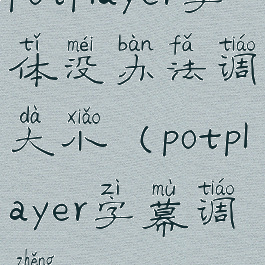 potplayer字
tǐ méi bàn fǎ tiáo
体没办法调
dà xiǎo
大小（potpl
zì mù tiáo
ayer字幕调
zhěng